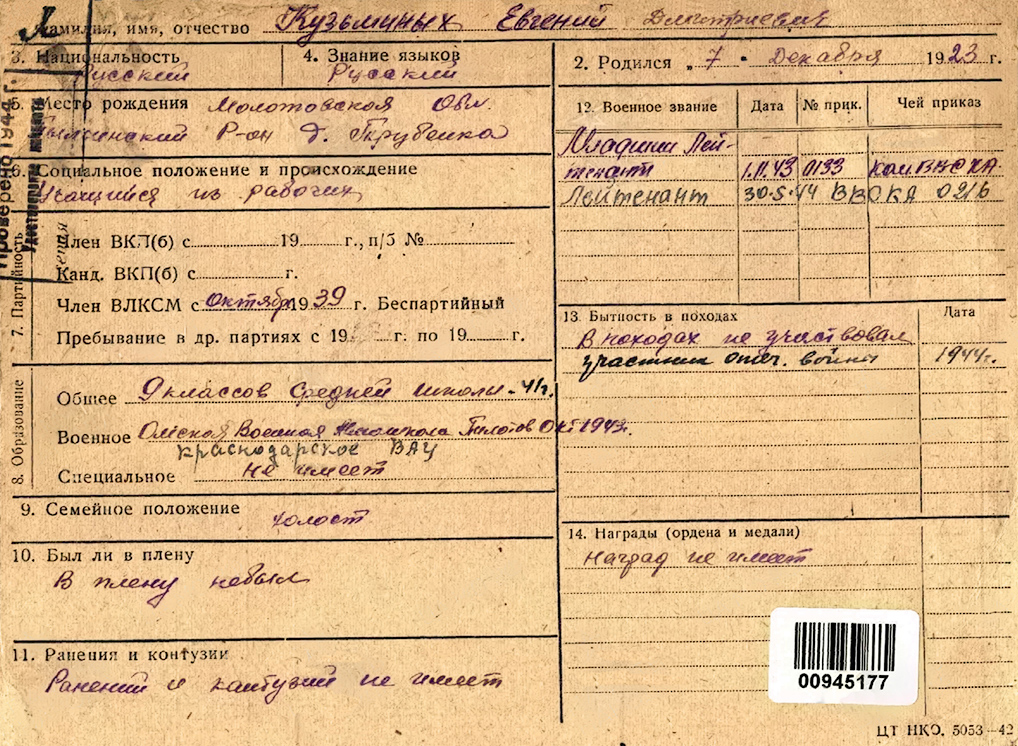 Фамилия, имя, отчество Кузьминых Евгений Дмитриевич
3. Национальность Русский
4. Знание языков Русский
2. Родился „7" Декабря 1923 г.
5. Место рождения Молотовская Обл.
Р-он д. Трубенка
6. Социальное положение и происхождение
Учащийся из рабочих
7. Партийность
Член ВКП(б) с 19 г., п/б №
Канд. ВКП(б) с г.
Член ВЛКСМ с октября 1939 г. Беспартийный
Пребывание в др. партиях с 19 г. по 19 г.
8. Образование
Общее 9 классов средней школы - 41г.
Военное Омская Военная Пилотов Окт 1943г.
Краснодарское ВАУ
Специальное не имеет
9. Семейное положение холост
10. Был ли в плену
В плену небыл
11. Ранения и контузии
Ранений и контузий не имеет
12. Военное звание Дата № прик. Чей приказ
Младший Лей-
тенант 1.11.43 0133
Лейтенант 30.5.44 ВВС КА 0216
13. Бытность в походах Дата
В походах не участвовал
участник отеч. войны 1944г.
14. Награды (ордена и медали)
Наград не имеет
Проверено 1944 г.
00945177
ЦТ НКО. 5053—42